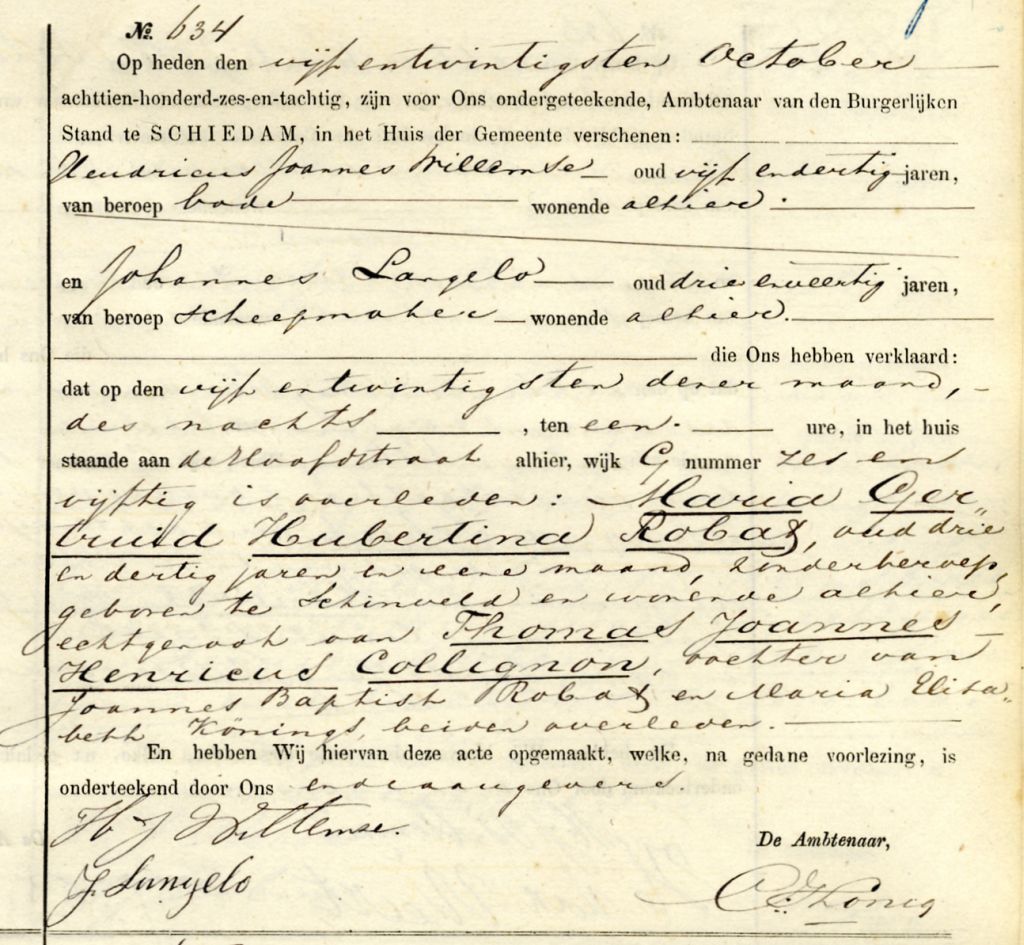 No. 634
Op heden den vijf entwintigsten October
achttien-honderd-zes-en-tachtig, zijn voor Ons ondergeteekende, Ambtenaar van den Burgerlijken
Stand te SCHIEDAM, in het Huis der Gemeente verschenen:
Hendricus Joannes Willemse oud vijf endertig jaren,
van beroep bode wonende alhier.
en Johannes Langelo oud drie enveertig jaren,
van beroep scheepmaker wonende alhier.
die Ons hebben verklaard:
dat op den vijf entwintigsten dezer maand,
des nachts, ten een ure, in het huis
staande aan de Hoofdstraat alhier, wijk G nummer zes en
vijftig is overleden: Maria Ger„
truid Hubertina Robax, oud drie
en dertig jaren en eene maand, zonder beroep,
geboren te Schinveld en wonende alhier,
echtgenoot van Thomas Joannes
Henricus Collignon, dochter van
Joannes Baptist Robax en Maria Elisa„
beth Könings, beiden overleden.
En hebben Wij hiervan deze acte opgemaakt, welke, na gedane voorlezing, is
onderteekend door Ons en de aangevers.
H J Willemse.
De Ambtenaar,
J. Langelo